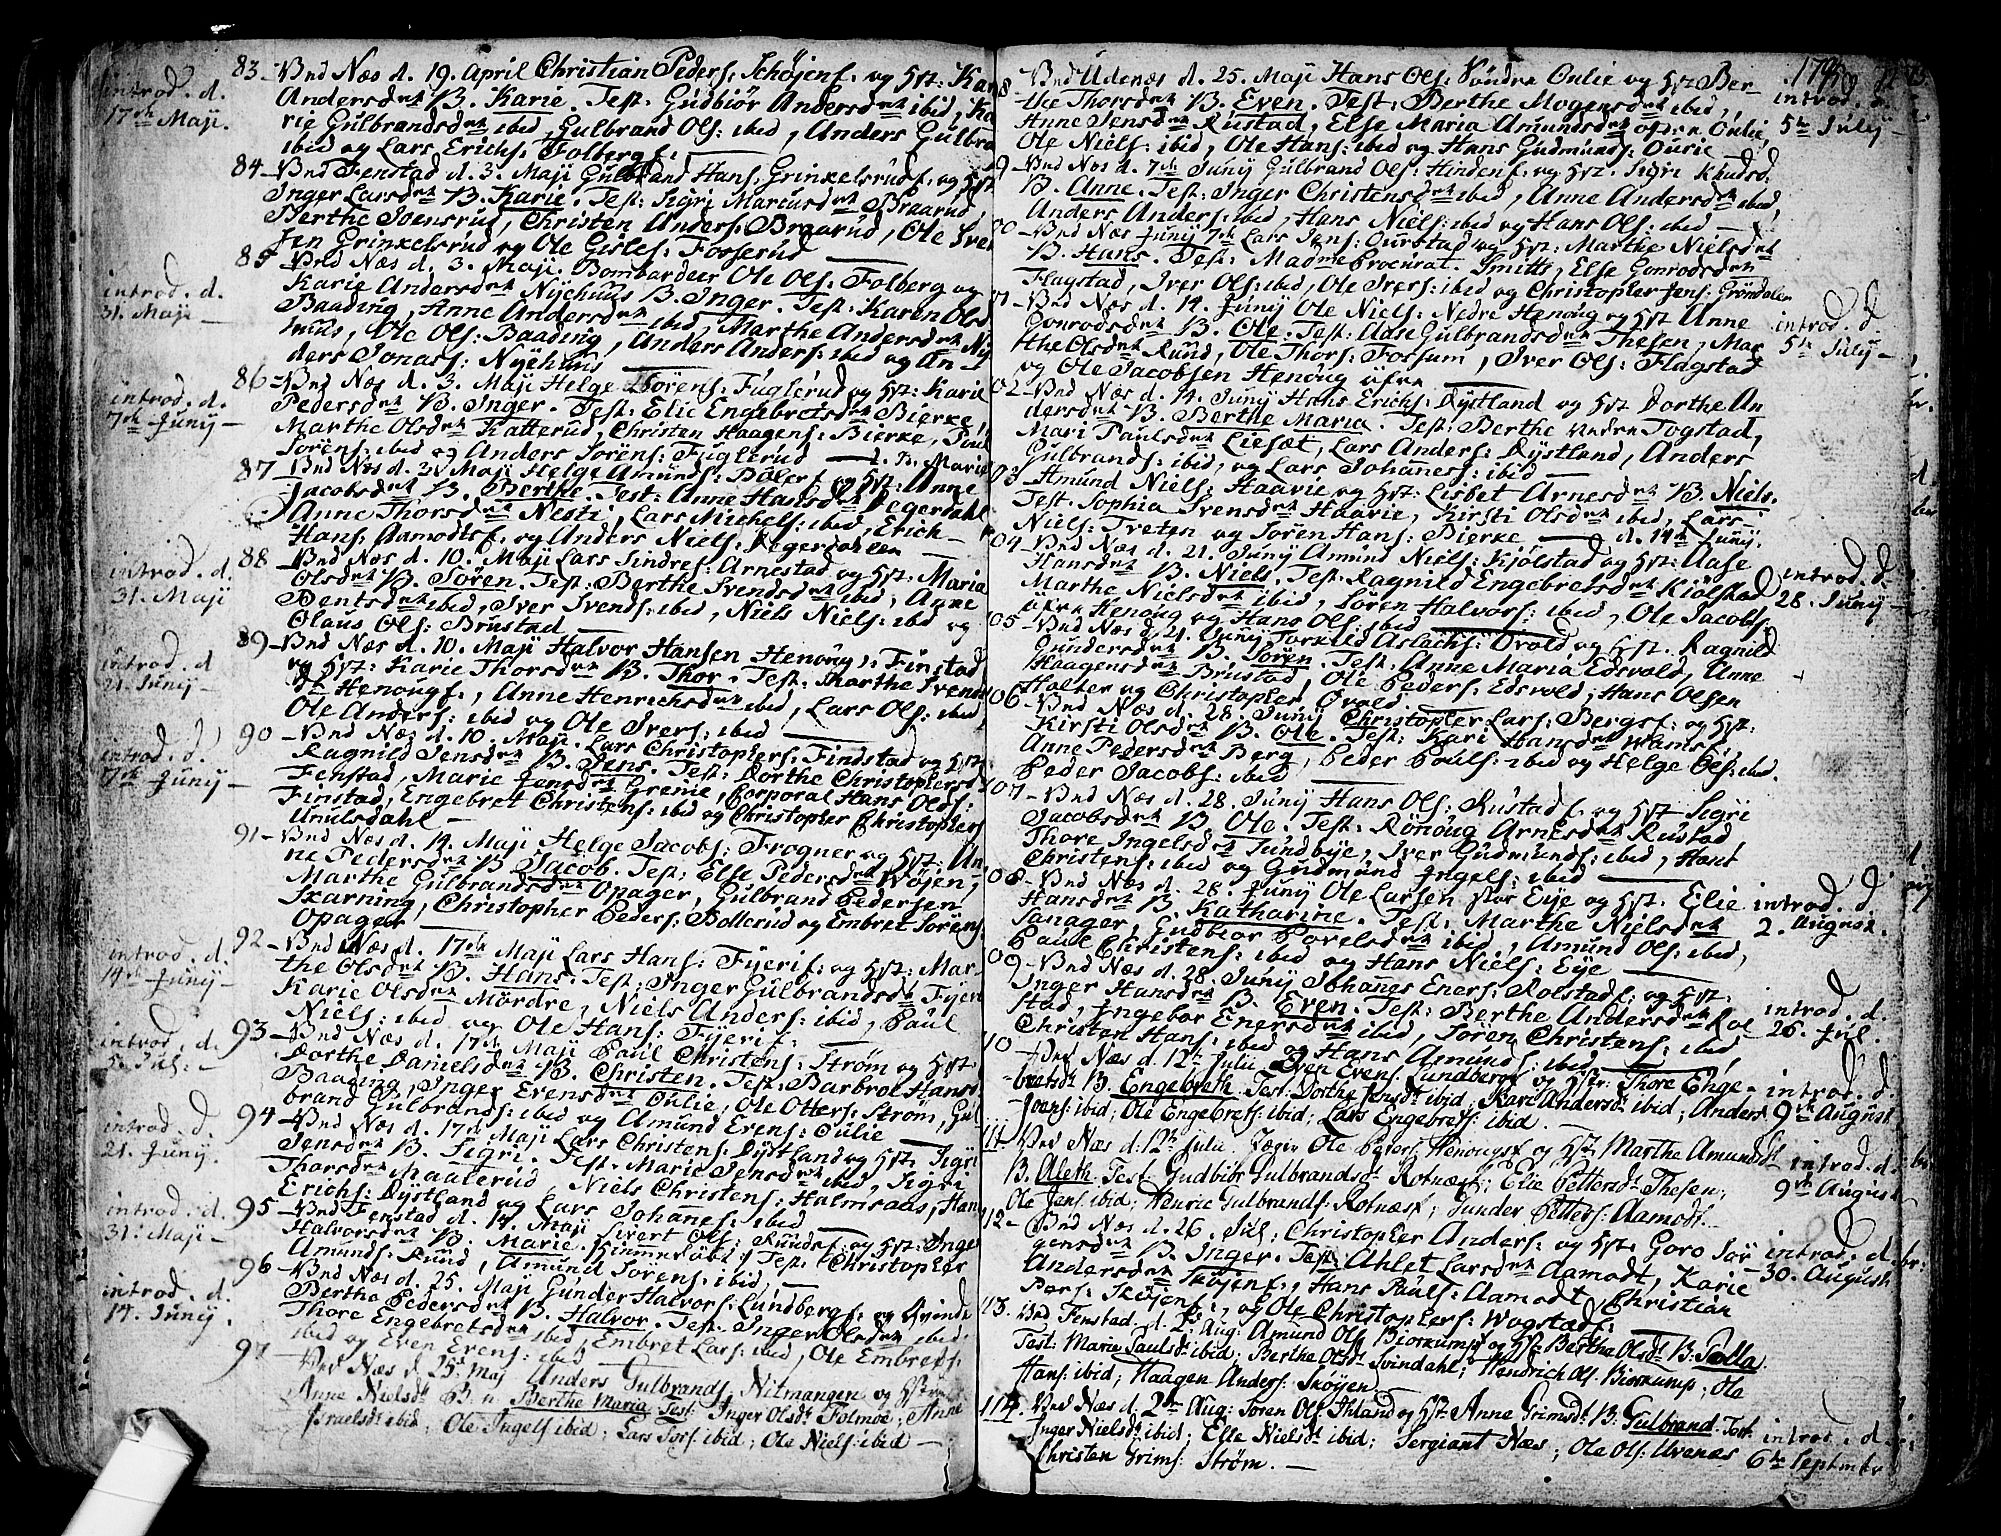 introd. d.
17de Maji.
83 - Bnd Næs d. 19. April Christian Peders: Schøjens: og Hst: Kari
Andersdtr B. Karie. Test: Gudbiør Andersdtr ibid, Ka
rie Gulbrandsdtr ibid, Gulbrand Ols: ibid, Anders Gulbra
ibid og Lars Erichs: Folbergs:
84 - Bnd Fenstad d. 3. Maji Gulbrand Hans: Grinkelsruds: og Hst
Inger Larsdtr B. Karie. Test: Sigri Marcusdtr Braarud,
Berthe Svensrud, Christen Anders: Braarud, Ole Sven
sen Grinkelsrud og Ole Gisles: Fosserud
introd. d.
31. Maji -
85 - Bnd Næs d. 3. Maji. Bombardeer Ole Ols: Folberg og
Karie Andersdtr Nÿehuus B. Inger. Test: Karen Olsd
Baading, Anne Andersdtr ibid, Marthe Andersdtr Nÿ
huus, Ole Ols: Baading, Anders Anders: ibid og An-
ders Jonas: Nÿehuus
introd. d.
7de Junÿ -
86 - Bnd Næs d. 3. Maji Helge Sörens: Fuglerud og Hst: Karie
Pedersdtr B. Inger. Test: Elie Engebretsdtr Bierke,
Marthe Olsdtr Katterud, Christen Haagens: Bierke, Poul
Sörens: ibid og Anders Sörens: Fuglerud
87 - Bnd Næs d. 3. Maji Helge Amunds: Bölers: og Hst: Anne Marie
Jacobsdtr B. Berthe. Test: Anne Hansdtr Degerdahl
Anne Thorsdtr Nesti, Lars Michels: ibid, Erich
Hans: Aamodts: og Anders Niels: Degerdahlen
introd. d.
31. Maji
88 - Bnd Næs d. 10. Maji Lars Sindres: Arnestad og Hst: Maria
Olsdtr B. Sören. Test: Berthe Svendsdtr ibid, Anne
Bentsdtr ibid, Iver Svends: ibid, Niels Niels: ibid og
Olaus Ols: Brustad
introd. d
21. Junÿ -
89 - Bnd Næs d. 10. Maji Halvor Hansen Henoug: Finstad
og Hst: Karie Thorsdtr B. Thor. Test: Marthe Svendsd
Henougs:, Anne Henrichsdtr ibid, Lars Ols: ibid,
Ole Anders: ibid og Ole Ivers: ibid
introd. d.
7de Junÿ -
90 - Bnd Næs d. 10. Maji. Lars Christophers: Findstad og Hst:
Ragnild Jensdtr B. Jens. Test: Dorthe Christophersd
Fenstad, Marie Jensdtr Grenie, Corporal Hans Ols:
Finstad, Engebret Christens: ibid og Christopher Christophers
Amlsdahl -
91 - Bnd Næs d. 14. Maji Helge Jacobs: Frogner og Hst: An-
ne Pedersdtr B. Jacob. Test: Else Pedersdtr Wöjen,
Marthe Gulbrandsdtr Opager, Gulbrand Pedersen
Skarning, Christopher Peders: Bollerud og Embret Sörens
Opager
introd. d.
14de Junÿ -
92 - Bnd Næs d. 17de Maji Lars Hans: Fÿeris: og Hst: Mar-
the Olsdtr B. Hans. Test: Inger Gulbrandsdtr Fÿeri
Karie Olsdtr Mördre, Niels Anders: ibid, Paul
Niels: ibid og Ole Hans: Fÿeris:
introd. d.
5. Jul: -
93 - Bnd Næs d. 17de Maji Paul Christens: Strøm og Hst:
Dorthe Danielsdtr B. Christen. Test: Barbroe Hansd
Baading, Inger Evensdtr Oulie, Ole Otters: Strøm, Gul
brand Gulbrands: ibid og Amund Evens: Oulie
introd. d.
21. Junÿ.
94 - Bnd Næs d. 17d Maji Lars Christens: Dystland og Hst: Sigri
Jensdtr B. Sigri. Test: Marie Jensdtr ibid, Sigri
Thorsdtr Maalerud, Niels Christens: Halmsaas, Hans
Erichs: Dystland og Lars Johanes: ibid
introd. d.
31. Maji -
95 - Bnd Fenstad d. 17. Maji Sivert Ols: Ruuds: og Hst: Inge
Halvorsdtr B. Marie. Test: Christopher
Amunds: Ruud, Amund Sörens: ibid;
introd. d.
14. Junÿ.
96 - Bnd Næs d. 25. Maji Gunder Halvors: Lundbergs: og Qvinde
Berthe Pedersdtr B. Halvor. Test: Inger Olsdtr ibid.
Thore Engebretsdtr ibid, Embret Lars: ibid, Ole Embrets:
ibid og Even Evens: ibid
97 - Bnd Næs d. 25d Maj Anders Gulbrands: Nitmangen og Hst:
Anne Nielsdt B. n. Berthe Maria. Test: Inger Olsdt: Tolmoe; Anne
Israelsdt ibid; Ole Ingels: ibid; Lars Tors: ibid; Ole Niels: ibid -
1795
introd. d.
5te Julÿ -
8 - Bnd Udenæs d. 25. Maji Hans Ols: Söndre Oulie og Hst Ber-
the Thorsdtr B. Even. Test: Berthe Mogensdtr ibid,
Anne Jensdtr Rustad, Else Maria Amundsdtr Oulie,
Ole Niels: ibid, Ole Hans: ibid og Hans Gudmunds: Ourie
9 - Bnd Næs d. 7de Junÿ Gulbrand Ols: Hindens: og Hst. Sigri Knudsd.
B. Anne. Test: Inger Christensdtr ibid, Anne Andersdtr ibid,
Anders Anders: ibid, Hans Niels: ibid og Hans Ols: ibid -
00 - Bnd Næs Junÿ 7de Lars Jens: Ourstad og Hst: Marthe Nielsdtr
B. Hans. Test: Madme Procurat. Smitts, Else Gonrodsdtr
Flagstad, Iver Ols: ibid, Ole Ivers: ibid og Christopher Jens: Gröndalen
introd. d.
5te Julÿ -
01 - Bnd Næs d. 14. Junÿ Ole Niels: Nedre Henoug og Hst Anne
Gonrodsdtr B. Ole. Test: Aase Gulbrandsdtr Thesen, Mar
the Olsdtr Ruud, Ole Thors: Fossum, Iver Ols: Flagstad
og Ole Jacobsen Henoug öfre
02 - Bnd Næs d. 14. Junÿ Hans Erichs: Dystland og Hst Dorthe An
dersdtr B. Berthe Maria. Test: Berthe Togstad,
Mari Paulsdtr Liesæt, Lars Anders: Dystland, Anders
Gulbrands: ibid, og Lars Johanes: ibid
03 - Amund Niels: Haavie og Hst: Lisbet Arnesdtr B. Niels.
Test. Sophia Svensdtr Haavie, Kirsti Olsdtr ibid, Lars
Niels: Tveten og Sören Hans: Bierke - d. 14de Junÿ.
introd. d.
28. Junÿ -
04 - Bnd Næs d. 21. Junÿ Amund Niels: Kiölstad og Hst: Aase
Hansdtr B. Niels. Test. Ragnild Engebretsdtr Kiölstad
Marthe Nielsdtr ibid, Sören Halvors: ibid, Ole Jacobs:
öfre Henoug og Hans Ols: ibid
05 - Bnd Næs d. 21. Junÿ Torkild Aslachs: Ovold og Hst. Ragnild
Gundersdtr B. Sören. Test: Anne Maria Edsvold, Anne
Haagensdtr Brustad, Ole Peders: Edsvold, Hans Olsen
Holter og Christopher Ovold
06 - Bnd Næs d. 28. Junÿ Christopher Lars: Bergs: og Hst:
Kirsti Olsdtr B. Ole. Test: Kari Hansdtr Wams:,
Anne Pedersdtr Berg, Peder Pouls: ibid og Helge Ols: ibid.
Peder Jacobs: ibid
07 - Bnd Næs d. 28. Junÿ Hans Ols: Rustads: og Hst Sigri
Jacobsdtr B. Ole. Test: Rönoug Arnesdtr Rustad
Thore Ingelsdtr Sundbye, Iver Gudmunds: ibid, Hans
Christens: ibid og Gudmund Ingels: ibid
introd. d
2. August.
08 - Bnd Næs d. 28. Junÿ Ole Larsen Stor Eÿe og Hst: Elie
Hansdtr B. Katharine. Test: Marthe Nielsdtr
Sanager, Gudbiör Povelsdtr ibid, Amund Ols: ibid,
Paul Christens: ibid og Hans Niels: Eÿe
introd. d.
26. Jul.
09 - Bnd Næs d. 28. Junÿ Johanes Eners: Rolstads: og Hst:
Inger Hansdtr B. Even. Test: Berthe Andersdtr Rol
stad, Ingebor Enersdtr ibid, Sören Christens: ibid
Christen Hans: ibid og Hans Amunds: ibid
introd. d.
9de August
10 - Bnd Næs d. 12te Julii Even Evens: Lundbergs: og Hstr: Thore Enge-
bretsdt B. Engebreth. Test: Dorthe Jensdt ibid; Kari Andersdt ibid; Anders
Joens: ibid; Ole Engebrets: ibid; Lars Engebrets: ibid.
introd. d.
9de August
111 - Bnd Næs d: 12te Julii Jæger Ole Peters: Henougs: og Hst: Marthe Amundsdt
B. Aleth. Test: Gudbiör Gulbrandsdt Rotnæs:; Elie Pettersdt Thesen;
Ole Jens: ibid; Henric Gulbrands: Rotnæs:; Gunder Petters: Aamodt.
introd. d.
30. August
112 - Bnd Næs d. 26. Jul: Christopher Anders: og Hst: Goro Jör
gensdtr B. Inger. Test: Ahlet Larsdtr Aamodt, Karie
Andersdtr Skøjens:, Hans Pauls: Aamodt, Christian
Pers: Skøjens:, og Ole Christophers: Wogstads:
113. Bnd Fenstad d. 2. Aug: Amund Ols: Biorkump og Hst: Berthe Olsdt B: Polla.
Test: Marie Paulsdt ibid; Berthe Olsdt Svindahl; Hendrich Ols: Biorkump; Ole
Hans: ibid; Haagen Anders: Skøyen
introd. d.
6te Septembr
114. Bnd Næs d. 2den Aug: Søren Ols: Ihland og Hst: Anne Grimsdt B. Gulbrand. Test:
Inger Nielsdt ibid; Else Nielsdt ibid; Sergiant Næs; Ole Ols: Uvenæs
Christen Grims: Strøm. -